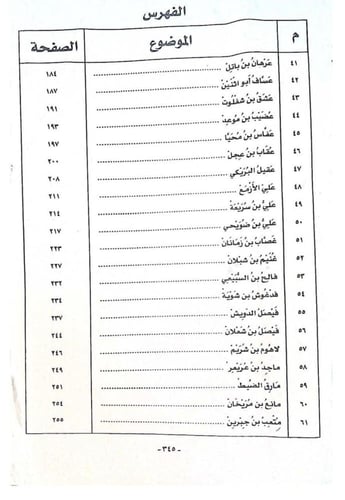 الفهرس
م الموضوع الصفحة
٤١ عَرْهَان بن بَاتِل ١٨٤
٤٢ عَسَّاف أبو اثْنَيْن ١٨٧
٤٣ عَشَق بن شفلوت ١٩١
٤٤ عُضَيْب بن مُوعد ١٩٣
٤٥ عَفَّاس بن مُحَيَّا ١٩٧
٤٦ عُقَاب بن عجل ٢٠٠
٤٧ عقيل البُرَيْكي ٢٠٨
٤٨ علي الأَزْمَع ٢١١
٤٩ علي بن سُرَيْعَة ٢١٤
٥٠ علي بن ضويحي ٢١٧
٥١ غصَاب بن زمَانَان ٢٢٣
٥٢ غنيم بن شبلان ٢٢٧
٥٣ فالح بن السُّبَيْعي ٢٣٢
٥٤ فدغوش بن شوية ٢٣٤
٥٥ فيصل الدويش ٢٣٧
٥٦ فيصل بن شملان ٢٤٤
٥٧ لاهوم بن شريم ٢٤٦
٥٨ ماجد بن عريعر ٢٤٩
٥٩ مارق الضيط ٢٥١
٦٠ مانع بن مريخان ٢٥٤
٦١ متعب بن جبرين ٢٥٥
-٣٤٥-